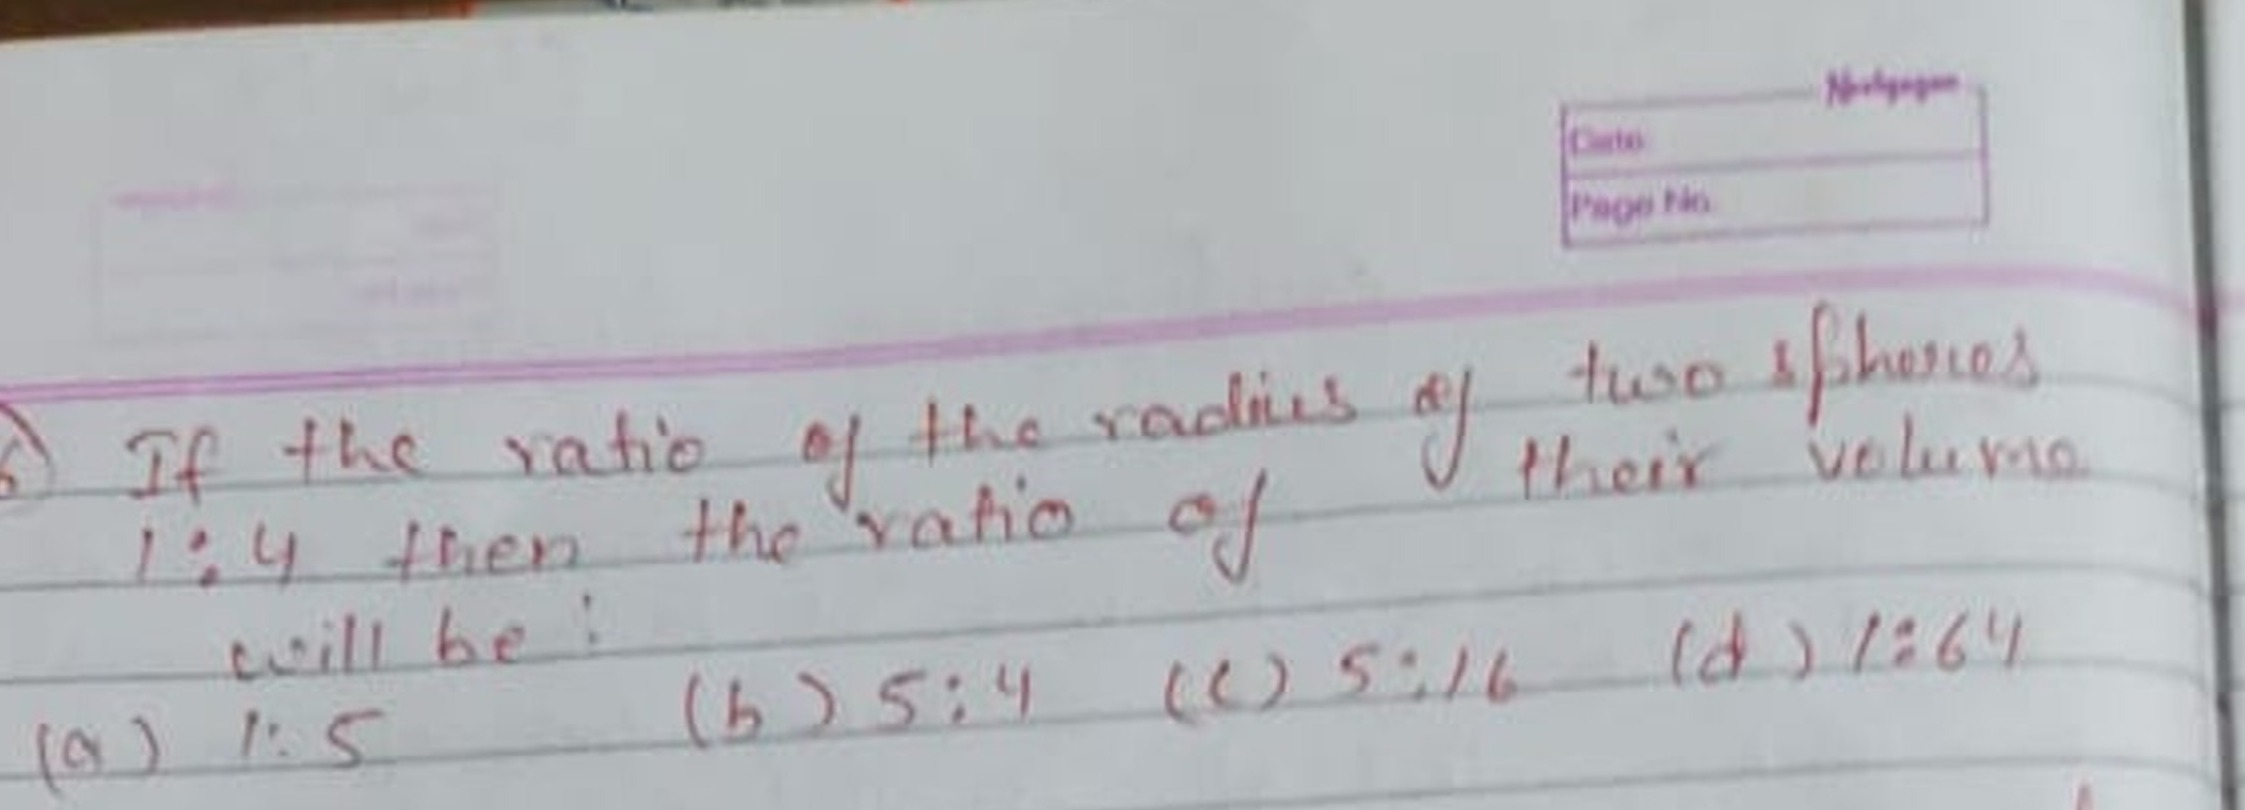 Navgagan
Date
Page No.
If the ratio of the radius of two spheres
1:4 then the ratio of their volume
will be:
(a) 1:5 (b) 5:4 (c) 5:16 (d) 1:64